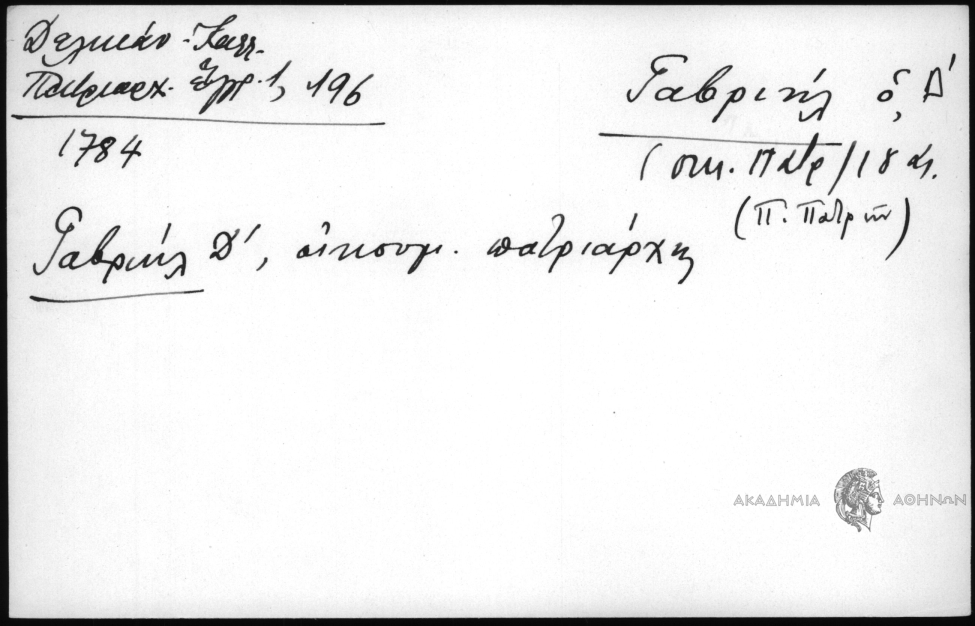 Δελικάν - Καλλ.
Πατριαρχ. Ἔγγρ. 1, 196
1784
Γαβριήλ ὁ Δ´
(οικ. Πατρ / 18 αἰ.
(Π. Πατρῶν)
Γαβριήλ Δ´, οἰκουμ. πατριάρχης
ΑΚΑΔΗΜΙΑ ΑΘΗΝΩΝ